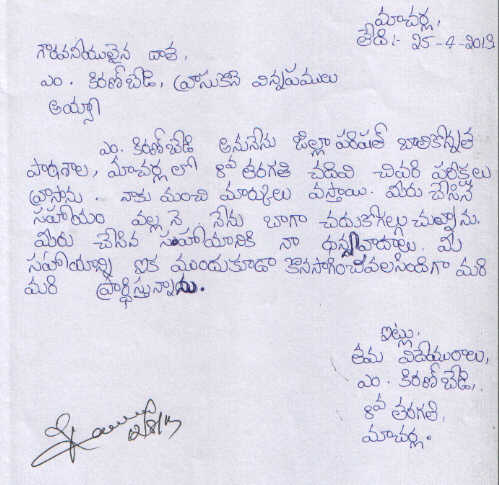 మాచర్ల,
తేది:- 25-4-2013
గౌరవనీయులైన దాత,
ఎం. కిరణ్ బేడి, వ్రాసుకొనే విన్నపములు
అయ్యా
ఎం. కిరణ్ బేడి అనునేను జిల్లా పరిషత్ బాలికోన్నత
పాఠశాల, మాచర్ల లో 8వ తరగతి చదివి చివరి పరీక్షలు
వ్రాసాను. నాకు మంచి మార్కులు వస్తాయి. మీరు చేసిన
సహాయం వల్లనె నేను బాగా చదుకోగల్గుచున్నాను.
మీరు చేసిన సహాయానికి నా ధన్యవాదాలు. మీ
సహాయాన్ని ఐక ముందుకూడా కొనసాగించివలసిందిగా మరి
మరి ప్రార్థిస్తున్నాను.
ఇట్లు,
తమ విదేయురాలు,
ఎం. కిరణ్ బేడి,
8వ తరగతి,
మాచర్ల.